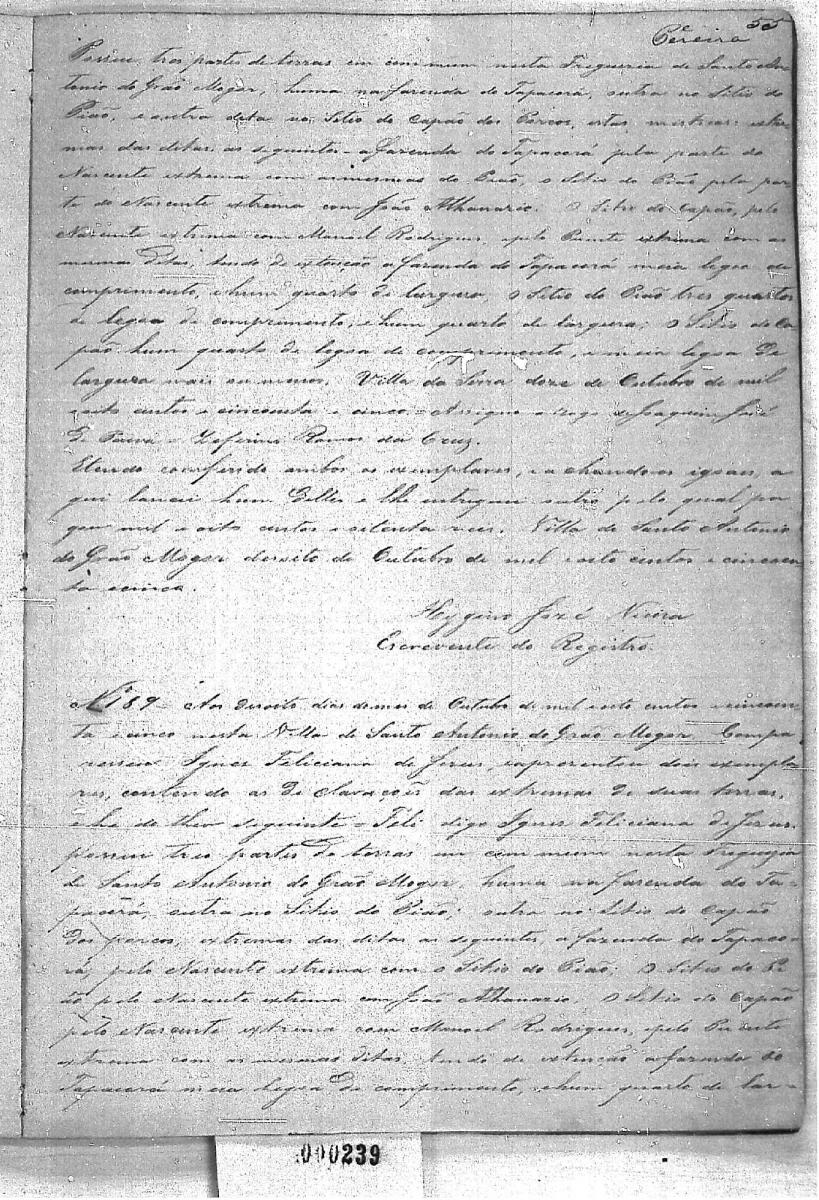 55
Pereira
Possue tres partes de terras em commum nesta Freguezia de Santo An-
tonio do Grão Mogor, huma na fazenda do Tapacorá, outra no Sitio do
Pião, e outra dita no Sitio do Capão dos Porcos, estas misticas extre-
mas das ditas as seguintes = a fazenda do Tapacorá pela parte do
Nascente extrema com as mesmas do Pião, o Sitio do Pião pela par-
te do Nascente extrema com João Athanazio. O Sitio do Capão, pelo
Nascente extrema com Manoel Rodrigues, e pelo Puente extrema com as
mesmas ditas, tendo de extenção a fazenda do Tapacorá meia legoa de
comprimento, e hum quarto de largura, o Sitio do Pião tres quartos
de legoa de comprimento, e hum quarto de largura; o Sitio do Ca-
pão hum quarto de legoa de comprimento, e meia legoa de
largura mais ou menos. Villa da Serra doze de Outubro de mil
oito centos e cincoenta e cinco = Assigno a rogo de Joaquim José
de Paiva = Zeferino Ramos da Cruz.
E tendo conferido ambos os exemplares, e achando-os iguaes, a
qui lancei hum delles e lhe entreguei outro pelo qual pa
gou mil e oito centos e setenta reis. Villa de Santo Antonio
do Grão Mogor desoito de Outubro de mil e oito centos e cincoen
ta e cinco.
Hygino José Vieira
Escrevente do Registro.
N 189 Aos desoito dias do mes de Outubro de mil e oito centos e cincoen
ta e cinco nesta Villa de Santo Antonio do Grão Mogor, Compa
resseu Ignes Feliciana de Jesus, e aprosentou dois exempla
res, contendo as declarações das extremas de suas terras,
e he do theor seguinte = Feli digo Ignes Feliciana de Jesus
possue tres partes de terras em commum nesta Freguezia
de Santo Antonio do Grão Mogor, huma na fazenda do Ta-
pacorá, outra no Sitio do Pião; outra no Sitio do Capão
dos porcos, extremas das ditas as seguintes, a fazenda do Tapaco-
rá, pelo Nascente extrema com o Sitio do Pião; o Sitio do Pi
ão pelo Nascente extrema com João Athanazio. O Sitio do Capão
pelo Nascente extrema com Manoel Rodrigues, e pelo Puente
extrema com as mesmas ditas, tendo de extenção a fazenda do
Tapacorá meia legoa de comprimento, e hum quarto de lar-
000239